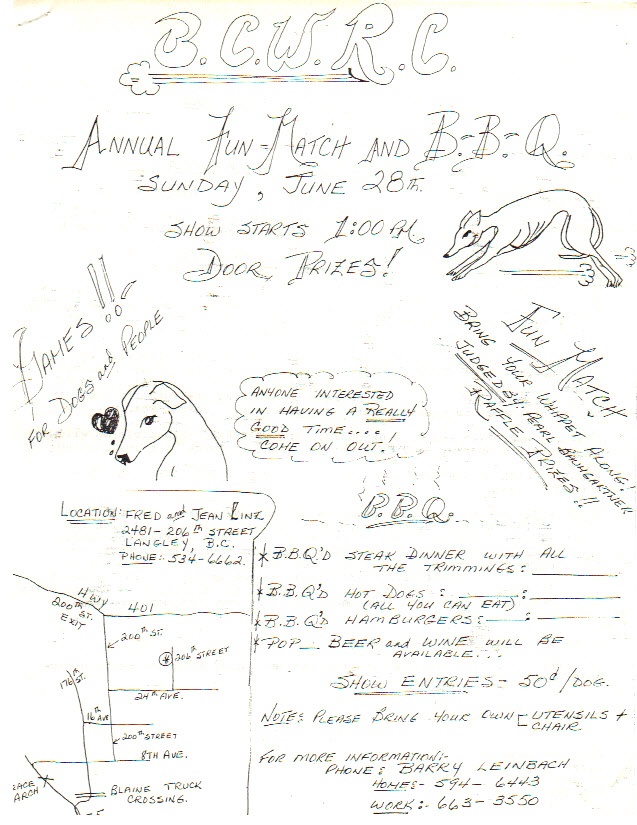 B.C.W.R.C.
ANNUAL FUN-MATCH AND B-B-Q.
SUNDAY, JUNE 28th.
SHOW STARTS 1:00 PM
DOOR PRIZES!
GAMES!!
FOR DOGS and PEOPLE
FUN MATCH
BRING YOUR WHIPPET ALONG!
JUDGED BY: PEARL BAUMGARTNER
RAFFLE PRIZES!!
ANYONE INTERESTED
IN HAVING A REALLY
GOOD TIME....
COME ON OUT!
LOCATION: FRED and JEAN LINZ
2481-206th STREET
LANGLEY, B.C.
PHONE: 534-6662
HWY 401
200th ST. EXIT
200th ST.
206th STREET
176th ST.
24th AVE.
16th AVE
200th STREET
8TH AVE.
ARCH
BLAINE TRUCK
CROSSING.
I-5
B.B.Q.
* B.B.Q'D STEAK DINNER WITH ALL
THE TRIMMINGS:
* B.B.Q'D HOT DOGS: :
(ALL YOU CAN EAT)
* B.B.Q'D HAMBURGERS: :
* POP BEER and WINE WILL BE
AVAILABLE...
SHOW ENTRIES- 50¢/DOG.
NOTE: PLEASE BRING YOUR OWN - UTENSILS +
CHAIR.
FOR MORE INFORMATION:-
PHONE: BARRY LEINBACH
HOME:- 594-6443
WORK:- 663-3550